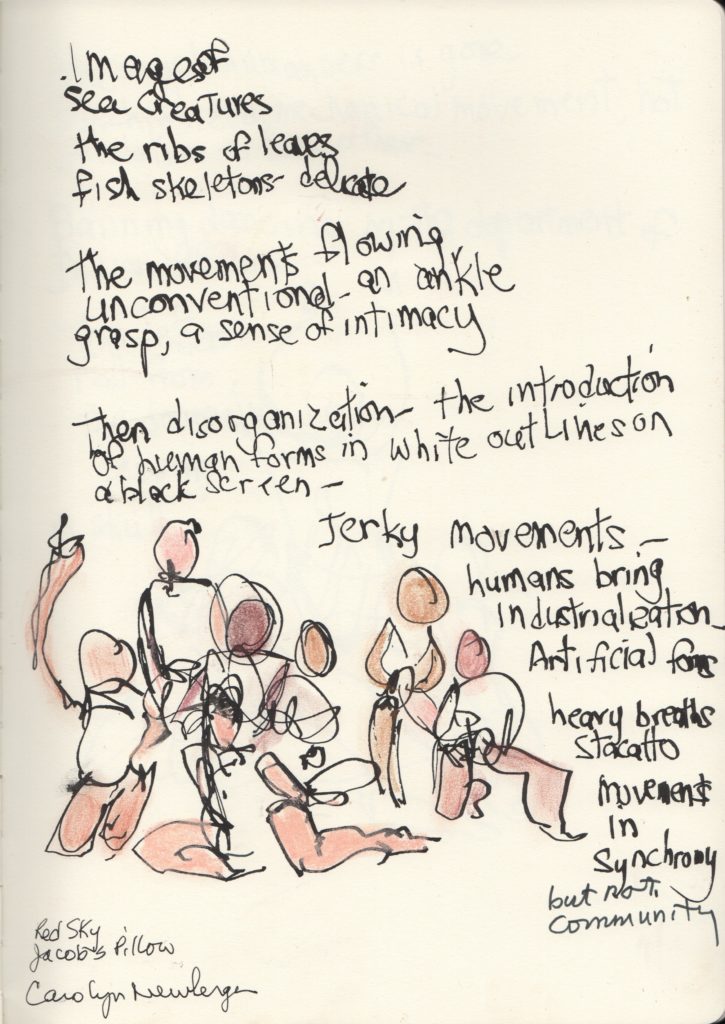 Images of
sea creatures
the ribs of leaves
fish skeletons- delicate
the movements flowing,
unconventional- an ankle
grasp, a sense of intimacy
Then disorganization- the introduction
of human forms in white outlines on
a black screen-
Jerky movements-
humans bring
Industrialization
Artificial forms
heavy breaths
stacatto
movement
in
synchrony
but not
community
Red Sky
Jacob's Pillow
Carolyn Newberger